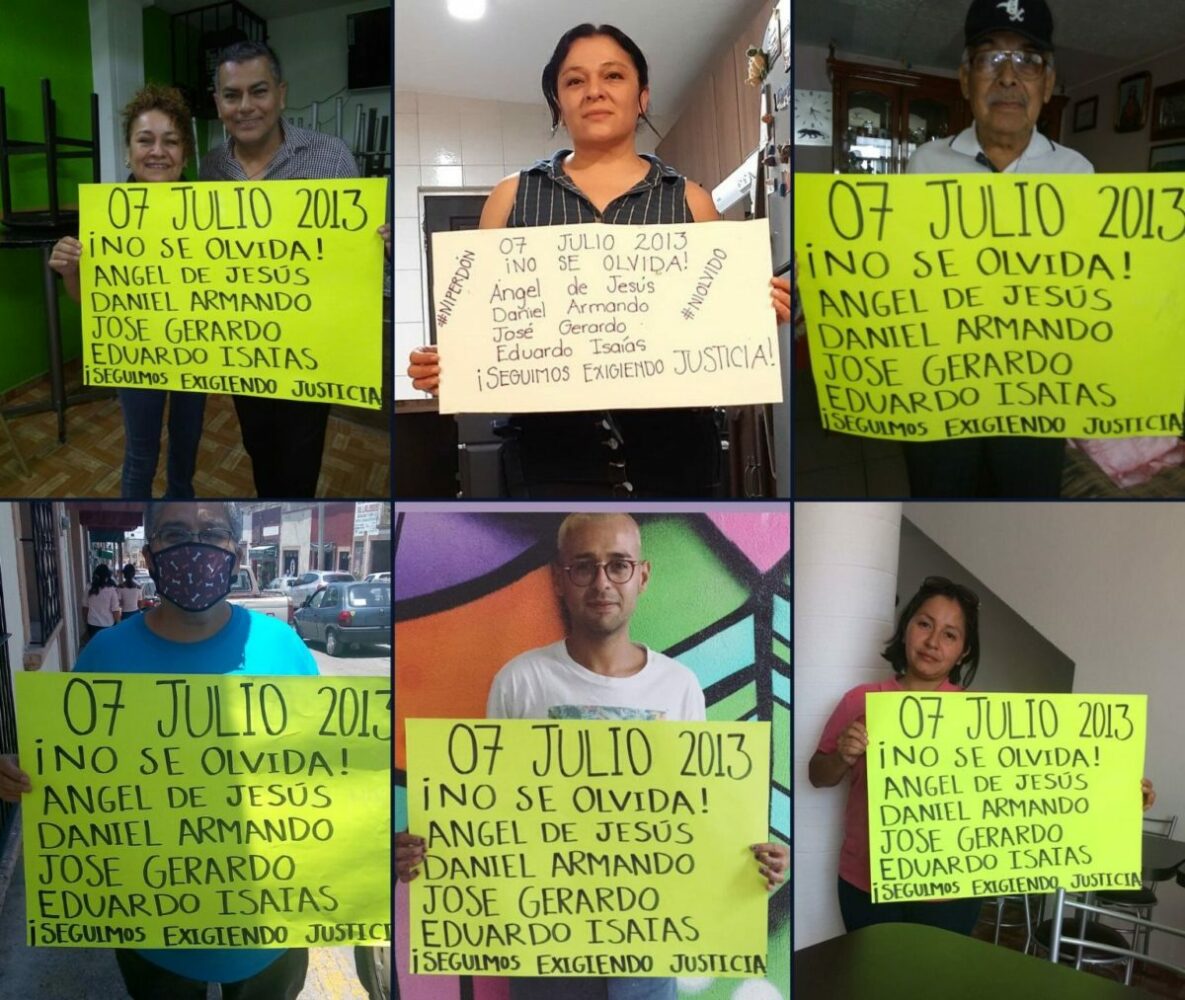 07 JULIO 2013
¡NO SE OLVIDA!
ANGEL DE JESÚS
DANIEL ARMANDO
JOSE GERARDO
EDUARDO ISAIAS
¡SEGUIMOS EXIGIENDO JUSTICIA
07 JULIO 2013
¡NO SE OLVIDA!
#NIPERDÓN
#NIOLVIDO
Ángel de Jesús
Daniel Armando
José Gerardo
Eduardo Isaías
¡SEGUIMOS EXIGIENDO JUSTICIA!
07 JULIO 2013
¡NO SE OLVIDA!
ANGEL DE JESÚS
DANIEL ARMANDO
JOSE GERARDO
EDUARDO ISAIAS
¡SEGUIMOS EXIGIENDO JUSTICIA
07 JULIO 2013
¡NO SE OLVIDA!
ANGEL DE JESÚS
DANIEL ARMANDO
JOSE GERARDO
EDUARDO ISAIAS
¡SEGUIMOS EXIGIENDO JUSTIC
07 JULIO 2013
¡NO SE OLVIDA!
ANGEL DE JESÚS
DANIEL ARMANDO
JOSE GERARDO
EDUARDO ISAIAS
¡SEGUIMOS EXIGIENDO JUSTICIA
07 JULIO 2013
¡NO SE OLVIDA!
ANGEL DE JESÚS
DANIEL ARMANDO
JOSE GERARDO
EDUARDO ISAIAS
¡SEGUIMOS EXIGIENDO JUSTICIA